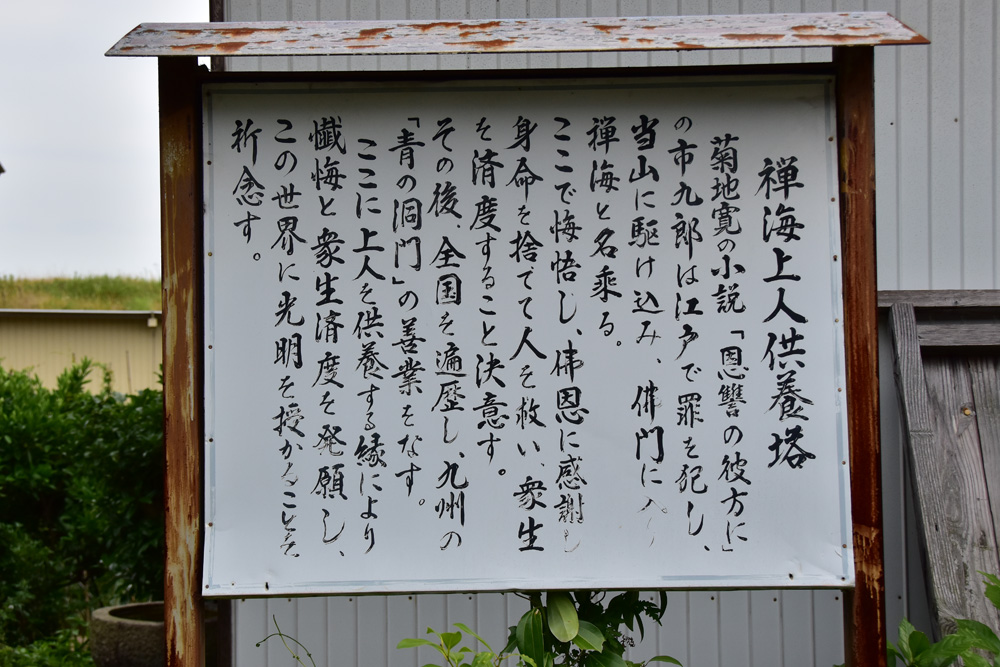 禅海上人供養塔
菊地寛の小説「恩讐の彼方に」
の市九郎は江戸で罪を犯し、
当山に駆け込み、佛門に入り
禅海と名乗る。
ここで悔悟し、佛恩に感謝し
身命を捨てて人を救い、衆生
を済度すること決意す。
その後、全国を遍歴し、九州の
「青の洞門」の善業をなす。
ここに上人を供養する縁により
懺悔と衆生済度を発願し、
この世界に光明を授かることを
祈念す。